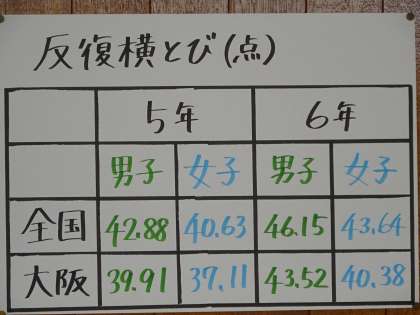 反復横とび(点)
5年 6年
男子 女子 男子 女子
全国 42.88 40.63 46.15 43.64
大阪 39.91 37.11 43.52 40.38